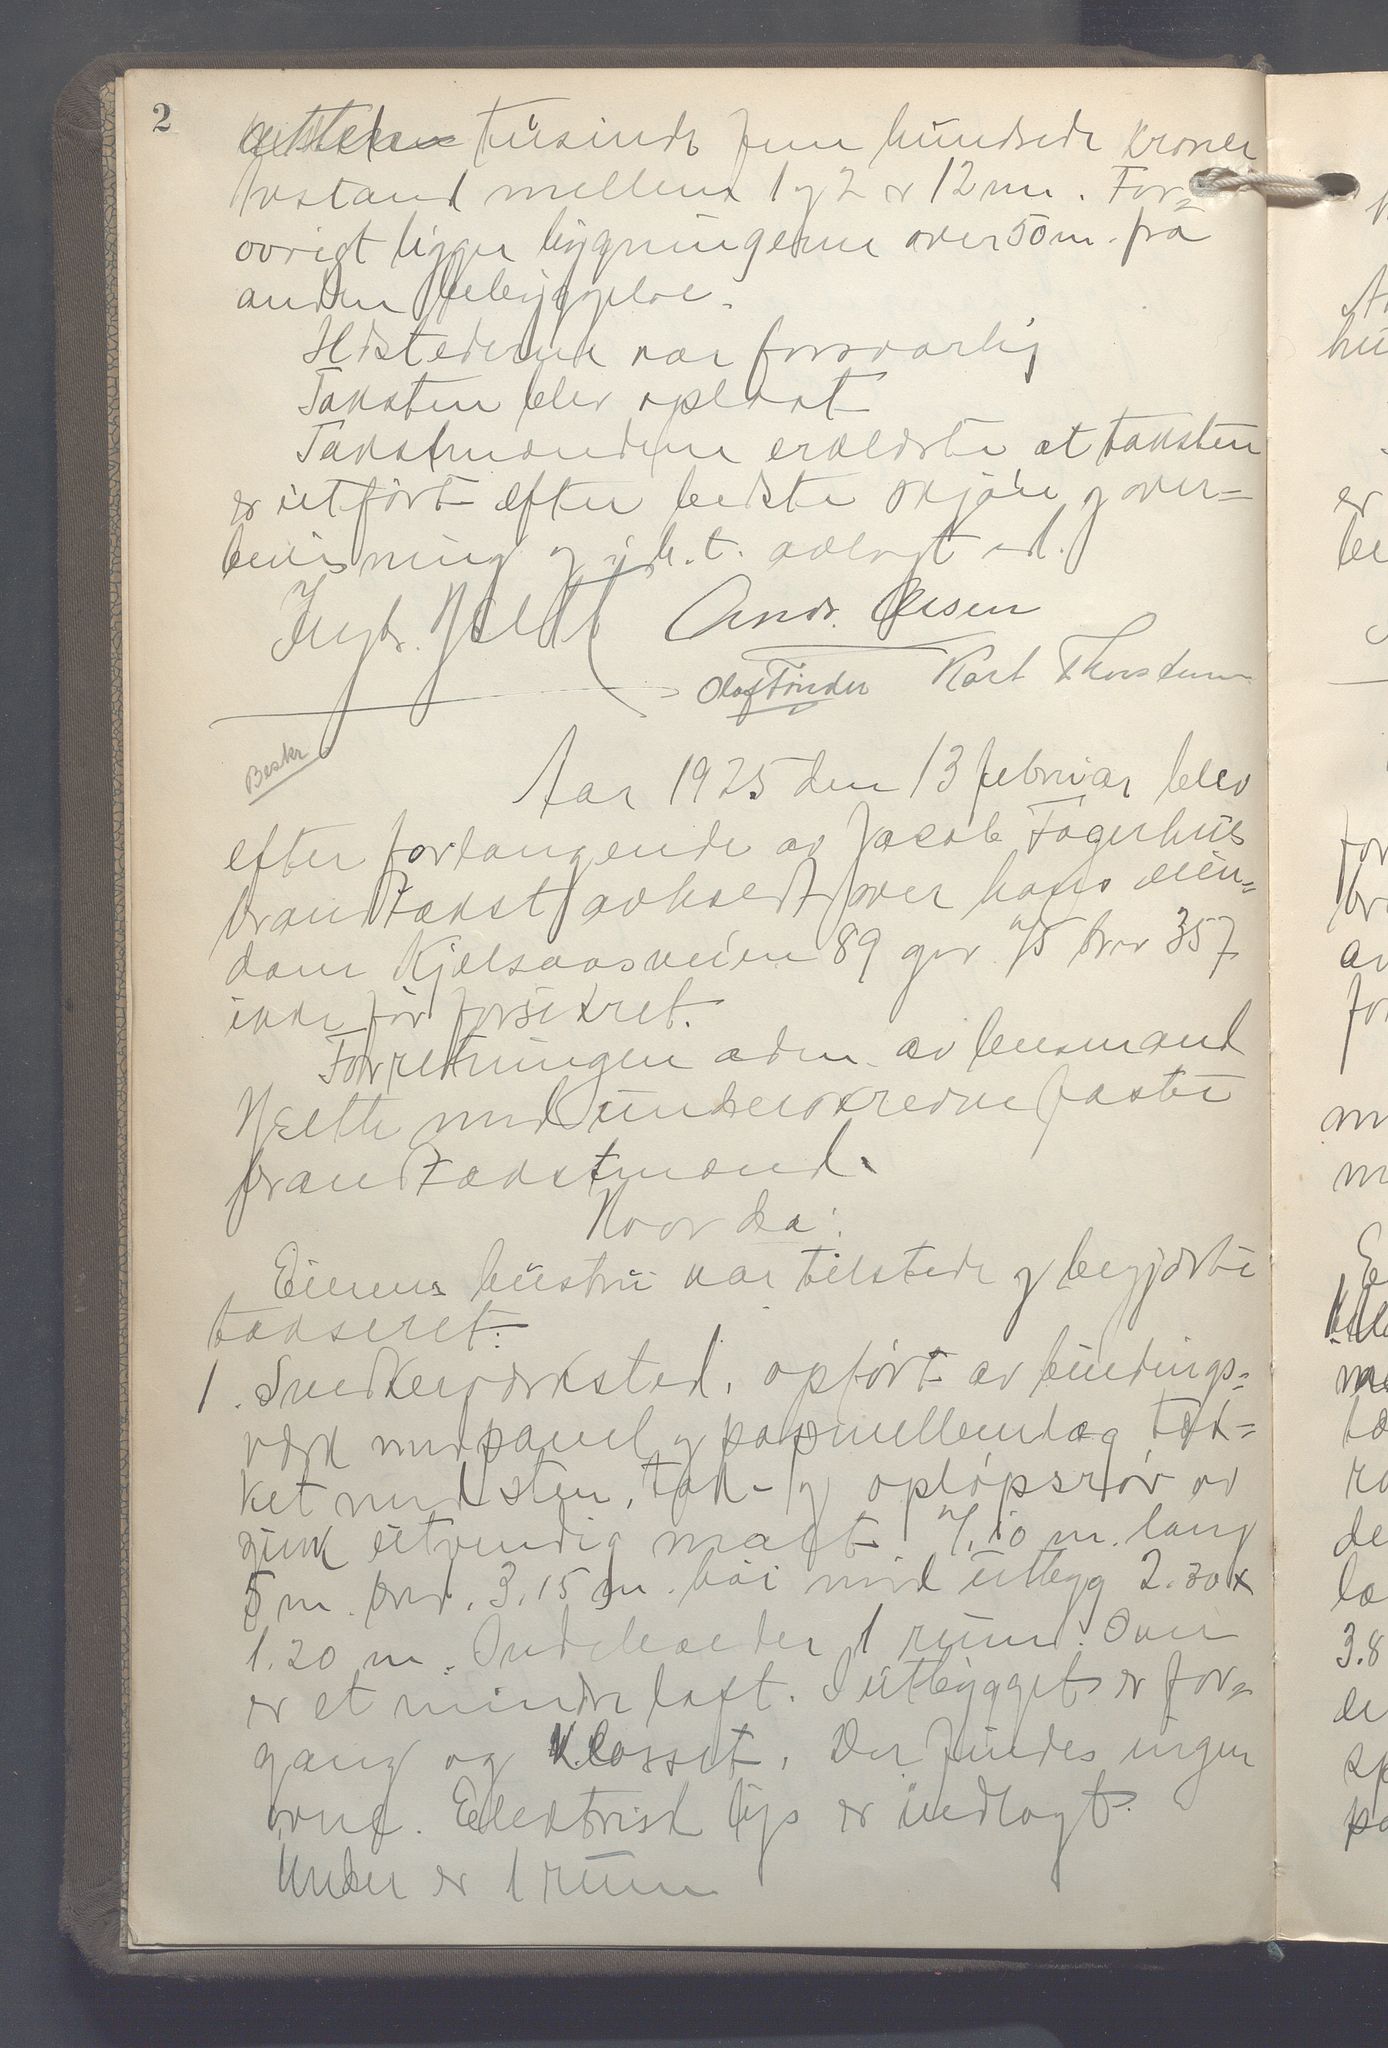 2
tusinde fem hundrede kroner
Avstand mellem 1 og 2 er 12 m. For=
øvrigt ligger bygningerne over 50 m. fra
anden bebyggelse.
Ildstederne var forsvarlig
Taksten blev oplæst
Takstmændene erklærte at taksten
er utført efter bedste skjøn og over=
bevisning og i h. t. avlagt ed.
Ingbr. Hjelth Andr. Olsen
Olaf Tønder Karl Thorstensen
Beskr
Aar 1925 den 13 februar blev
efter forlangende av Jacob Fagerhus
brandtakst avholdt over hans eien=
dom Kjelsaasveien 89 gnr. 75 brnr 357
ikke før forsikret.
Forretningen adm. av lensmand
Hjelth med underskrevne faste
brandtakstmænd.
Hvorda:
Eierens hustru var tilstede og begjærte
takseret.
1. Snedkerværksted, opført av bindings=
værk med panel og papmellemlæg tæk=
ket med sten, tak- og opløpsrør av
zink utvendig malt. 7,10 m. lang
5 m. bred, 3.15 m. høi med utbygg 2.30 x
1.20 m. Indeholder 1 rum. Over
er et mindre loft. I utbygget er for=
gang og klosset. Der findes ingen
ovne. Elektrisk lys er indlagt.
Under er 1 rum